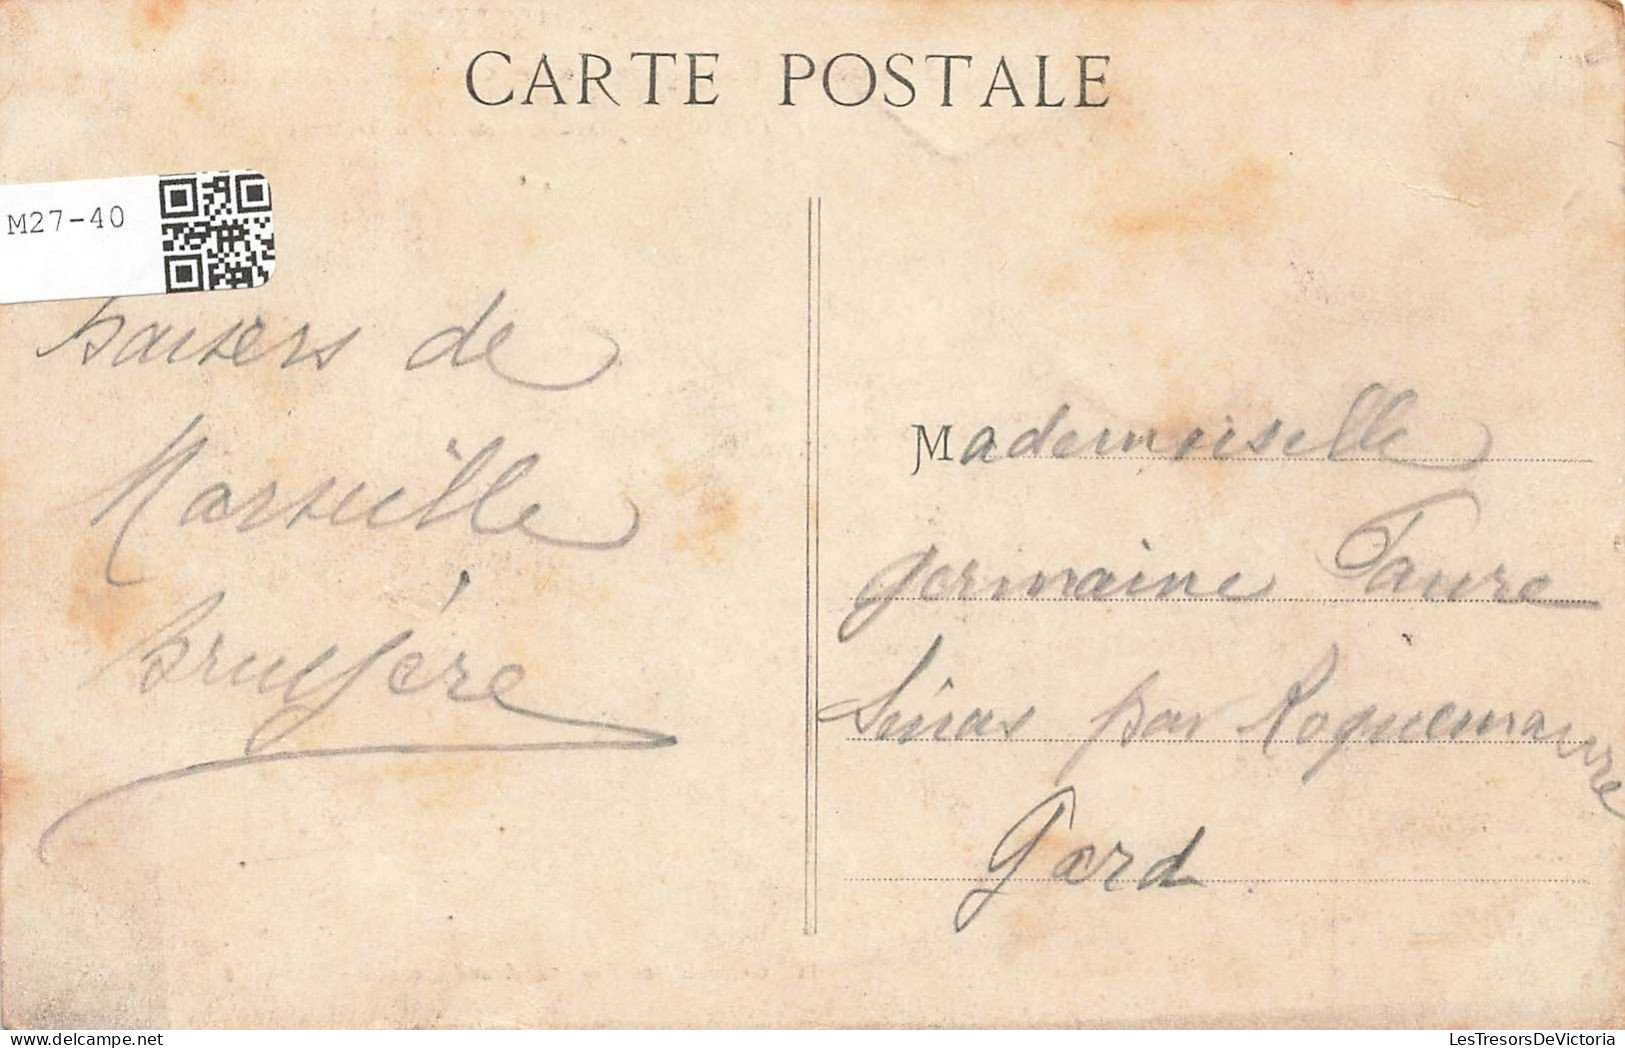 CARTE POSTALE
M27-40
baisers de
Marseille
Bruyère
Mademoiselle
germaine Faure
par Roquemaure
Gard
LesTresorsDeVictoria